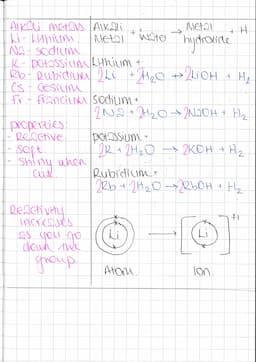 Alkali metals
Li - Lithium
Na - sodium
K - potassium
Rb - Rubidium
Cs - Cesium
Fr - Francium
properties:
- Reactive
- soft
- shiny when
cut
Reactivity
increases
as you go
down the
group.
Alkali Metal + Water → Metal hydroxide + H
Lithium +
2Li + 2H₂O → 2LiOH + H₂
Sodium +
2Na + 2H₂O → 2NaOH + H₂
potassium +
2K + 2H₂O → 2KOH + H₂
Rubidium +
2Rb + 2H₂O → 2RbOH + H₂
Li → [Li]⁺¹
Atom. Ion.